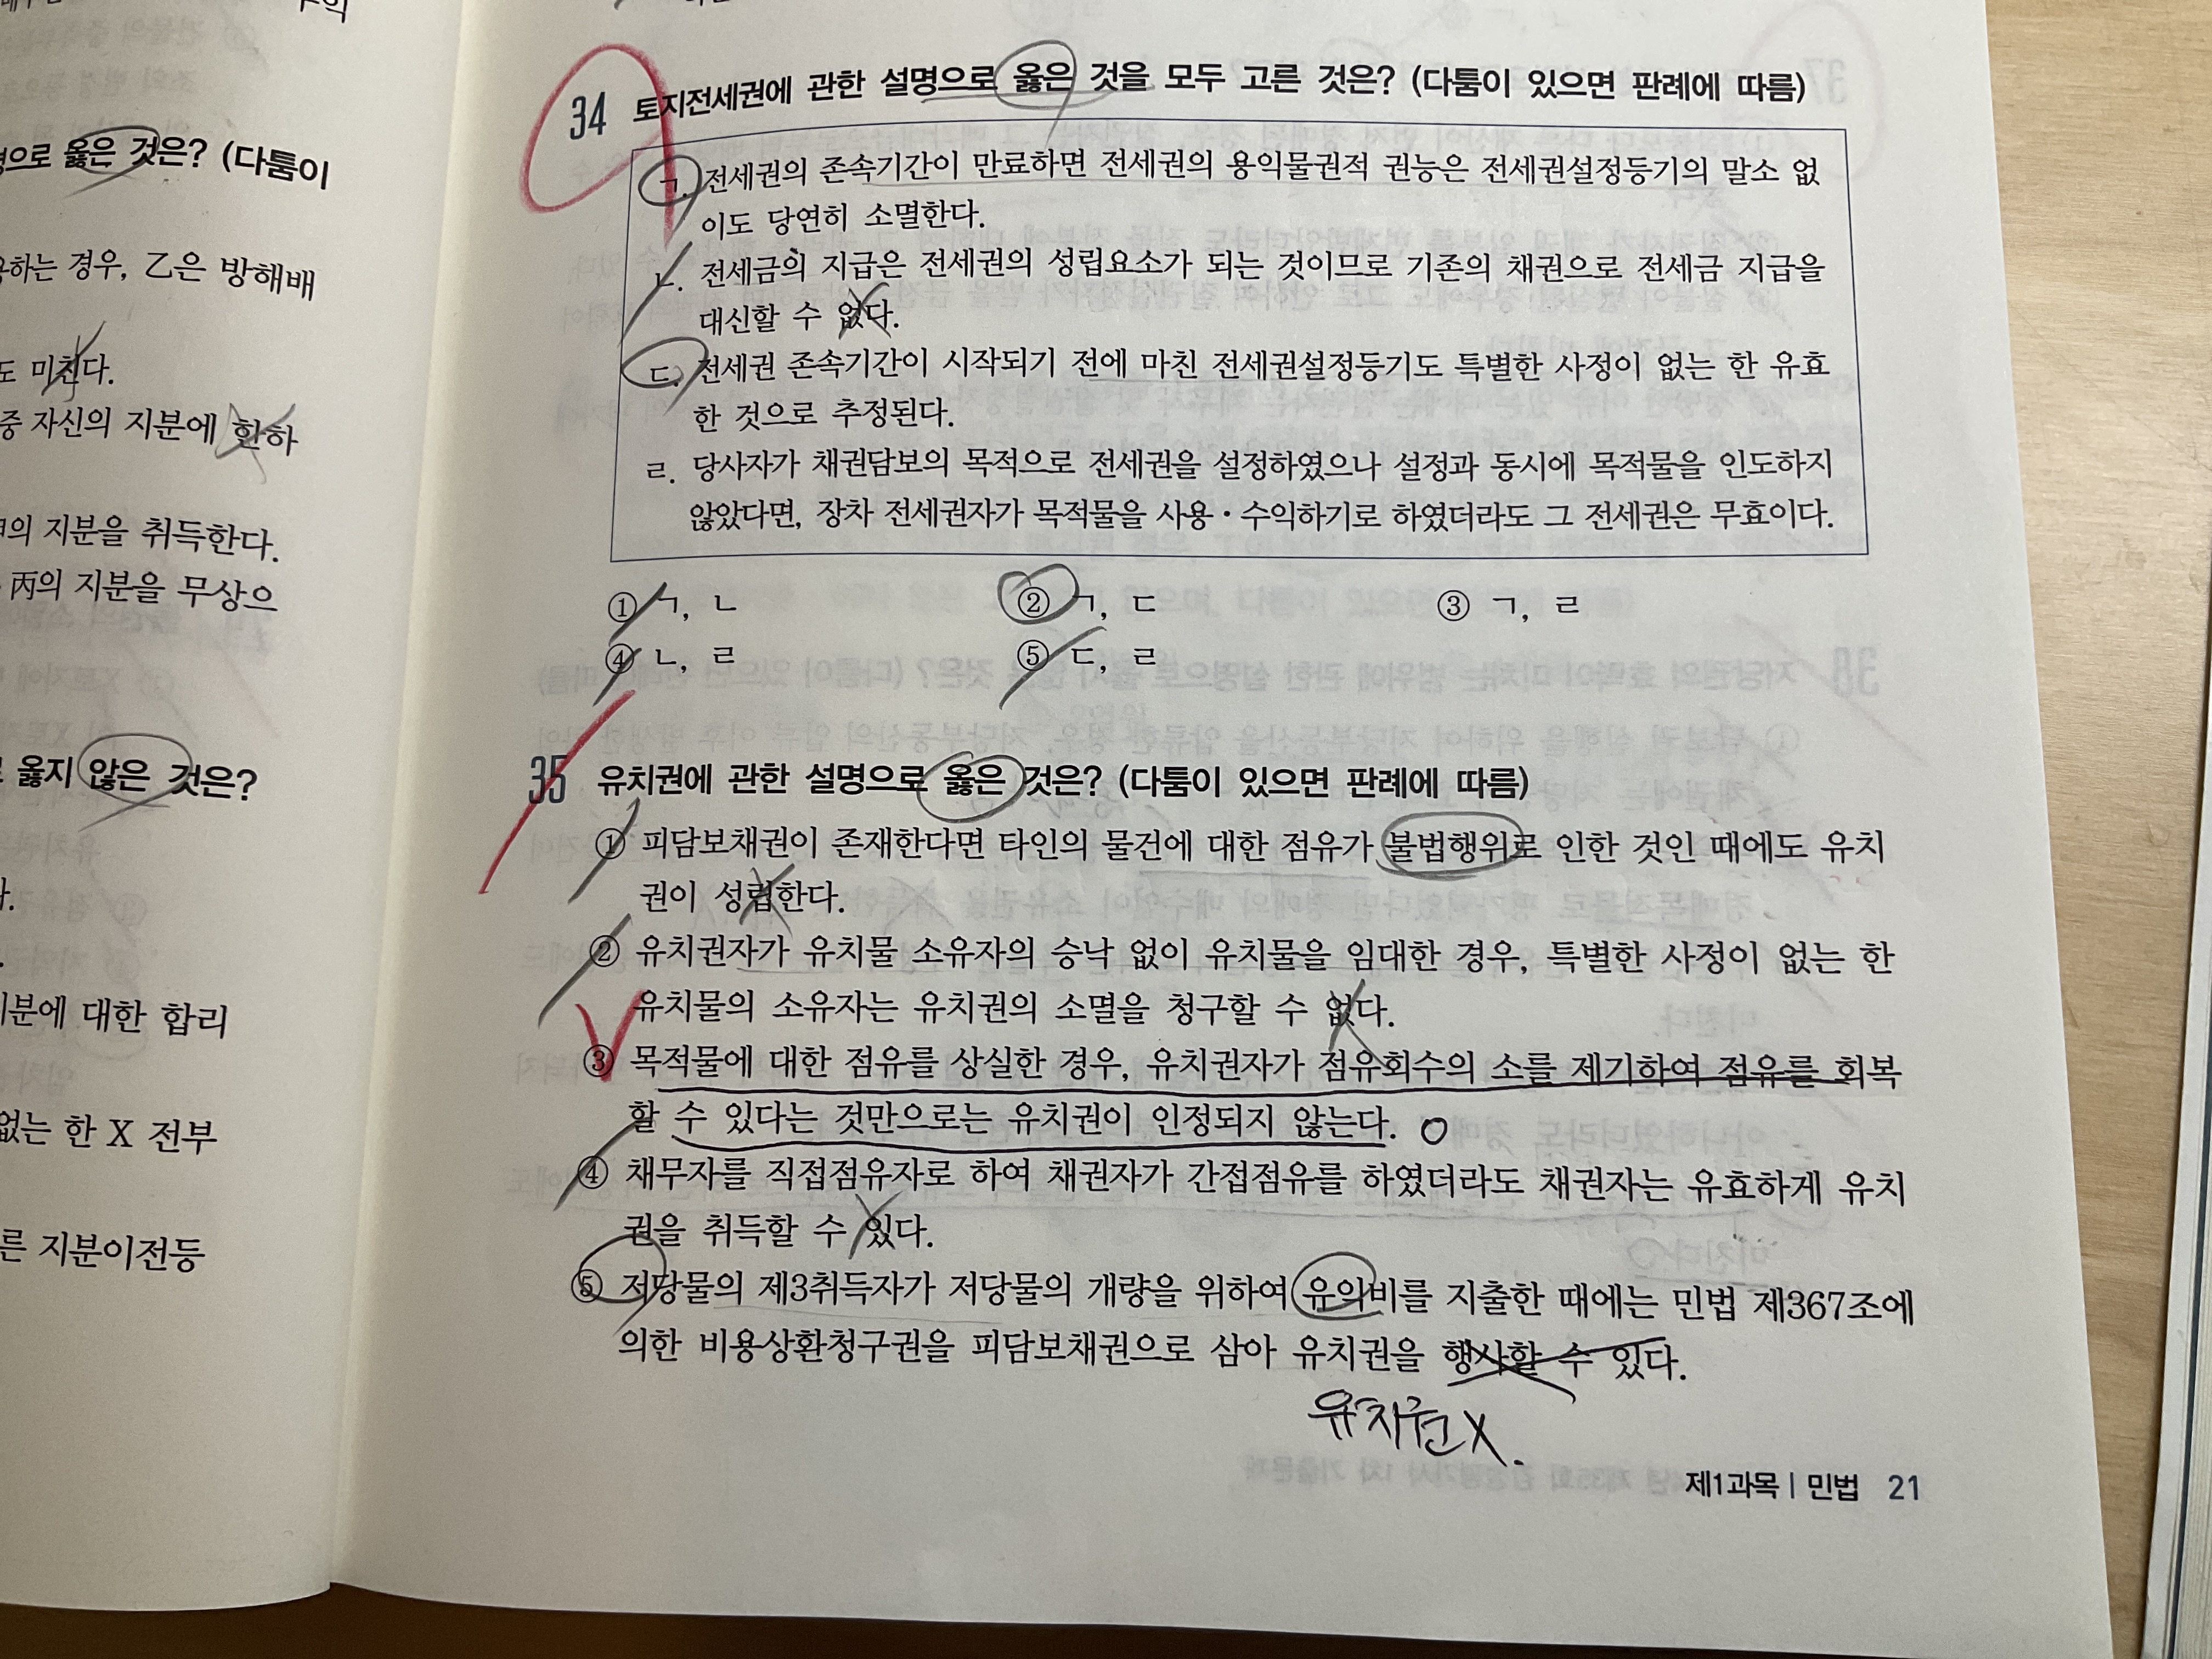 명으로 옳은 것은? (다툼이
하는 경우, 乙은 방해배
도 미친다.
중 자신의 지분에 한하
의 지분을 취득한다.
丙의 지분을 무상으
옳지 않은 것은?
지분에 대한 합리
없는 한 X 전부
른 지분이전등
34 토지전세권에 관한 설명으로 옳은 것을 모두 고른 것은? (다툼이 있으면 판례에 따름)
ㄱ. 전세권의 존속기간이 만료하면 전세권의 용익물권적 권능은 전세권설정등기의 말소 없
이도 당연히 소멸한다.
ㄴ. 전세금의 지급은 전세권의 성립요소가 되는 것이므로 기존의 채권으로 전세금 지급을
대신할 수 없다.
ㄷ. 전세권 존속기간이 시작되기 전에 마친 전세권설정등기도 특별한 사정이 없는 한 유효
한 것으로 추정된다.
ㄹ. 당사자가 채권담보의 목적으로 전세권을 설정하였으나 설정과 동시에 목적물을 인도하지
않았다면, 장차 전세권자가 목적물을 사용·수익하기로 하였더라도 그 전세권은 무효이다.
① ㄱ, ㄴ ② ㄱ, ㄷ ③ ㄱ, ㄹ
④ ㄴ, ㄹ ⑤ ㄷ, ㄹ
35 유치권에 관한 설명으로 옳은 것은? (다툼이 있으면 판례에 따름)
① 피담보채권이 존재한다면 타인의 물건에 대한 점유가 불법행위로 인한 것인 때에도 유치
권이 성립한다.
② 유치권자가 유치물 소유자의 승낙 없이 유치물을 임대한 경우, 특별한 사정이 없는 한
유치물의 소유자는 유치권의 소멸을 청구할 수 없다.
③ 목적물에 대한 점유를 상실한 경우, 유치권자가 점유회수의 소를 제기하여 점유를 회복
할 수 있다는 것만으로는 유치권이 인정되지 않는다. O
④ 채무자를 직접점유자로 하여 채권자가 간접점유를 하였더라도 채권자는 유효하게 유치
권을 취득할 수 있다.
⑤ 저당물의 제3취득자가 저당물의 개량을 위하여 유익비를 지출한 때에는 민법 제367조에
의한 비용상환청구권을 피담보채권으로 삼아 유치권을 행사할 수 있다.
유치권 X.
제1과목 | 민법 21